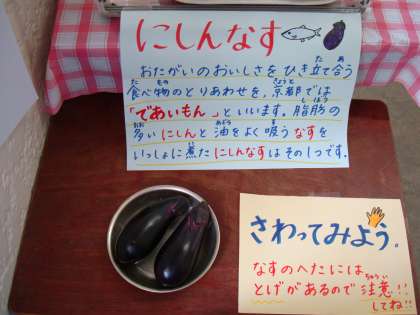 にしんなす
おたがいのおいしさをひき立て合う
食べ物のとりあわせを、京都では
「であいもん」といいます。脂肪の
多いにしんと油をよく吸うなすを
いっしょに煮たにしんなすはその1つです。
さわってみよう。
なすのへたには
とげがあるので注意!!
してね!!